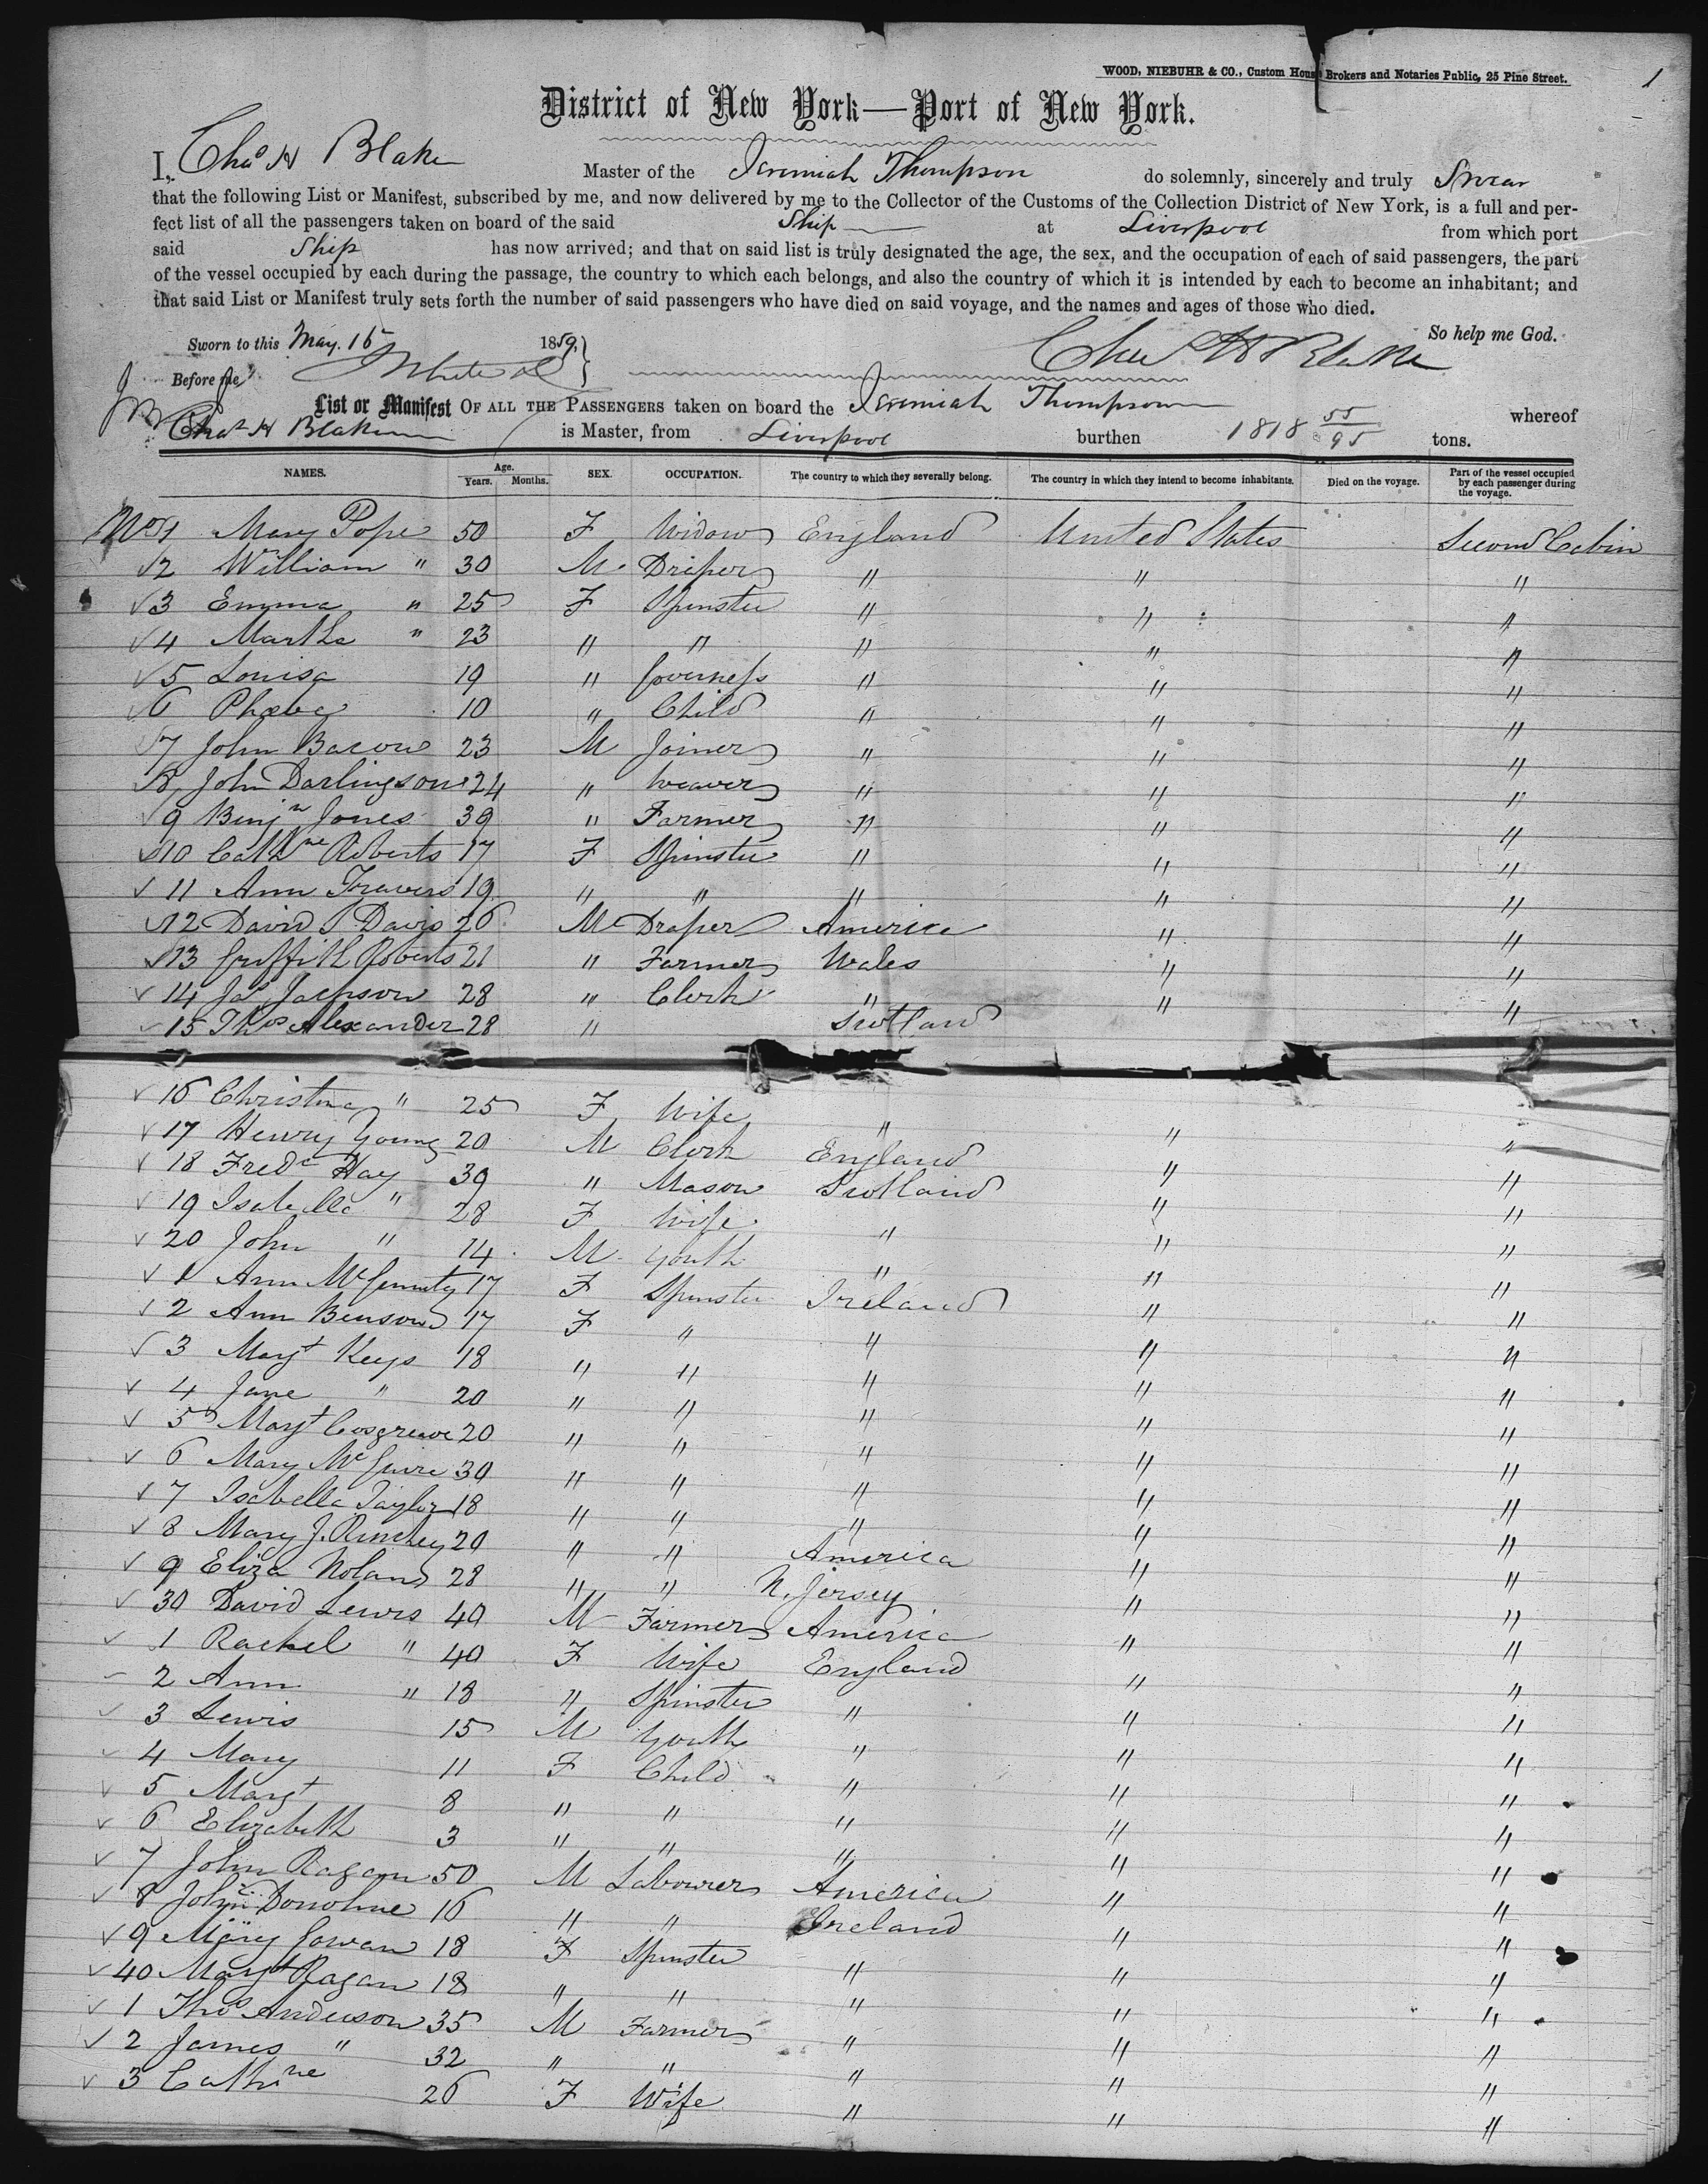 WOOD, NIEBUHR & CO., Custom House Brokers and Notaries Public, 25 Pine Street.
1
District of New York—Port of New York.
I, Chas H Blake Master of the Jeremiah Thompson do solemnly, sincerely and truly Swear
that the following List or Manifest, subscribed by me, and now delivered by me to the Collector of the Customs of the Collection District of New York, is a full and per-
fect list of all the passengers taken on board of the said Ship at Liverpool from which port
said Ship has now arrived; and that on said list is truly designated the age, the sex, and the occupation of each of said passengers, the part
of the vessel occupied by each during the passage, the country to which each belongs, and also the country of which it is intended by each to become an inhabitant; and
that said List or Manifest truly sets forth the number of said passengers who have died on said voyage, and the names and ages of those who died.
So help me God.
Sworn to this May. 16 1859, Chas H Blake
Before me
List or Manifest OF ALL THE PASSENGERS taken on board the Jeremiah Thompson whereof
Chas H Blake is Master, from Liverpool burthen 1818 55/95 tons.
NAMES. Age. Years. Months. SEX. OCCUPATION. The country to which they severally belong. The country in which they intend to become inhabitants. Died on the voyage. Part of the vessel occupied by each passenger during the voyage.
No 1 Mary Pope 50 F Widow England United States Second Cabin
2 William " 30 M Draper " " "
3 Emma " 25 F Spinster " " "
4 Martha " 23 " " " " "
5 Louisa 19 " Governess " " "
6 Phoebe 10 " Child " " "
7 John Bacon 23 M Joiner " " "
8 John Darlingson 24 " Weaver " " "
9 Benjn Jones 39 " Farmer " " "
10 Cathne Roberts 17 F Spinster " " "
11 Ann Travers 19 " " " " "
12 David S. Davis 26 M Draper America " "
13 Griffith Roberts 21 " Farmer Wales " "
14 Jas Jackson 28 " Clerk " " "
15 Thos Alexander 28 " Scotland
16 Christina " 25 F Wife " " "
17 Henry Young 20 M Clerk England " "
18 Fredc Hay 39 " Mason Scotland " "
19 Isabella " 28 F Wife " " "
20 John " 14 M Youth " " "
1 Ann McGennity 17 F Spinster Ireland " "
2 Ann Benson 17 F " " " "
3 Margt Keys 18 " " " " "
4 Jane " 20 " " " " "
5 Margt Cosgreave 20 " " " " "
6 Mary McGuire 30 " " " " "
7 Isabella Taylor 18 " " " " "
8 Mary J. 20 " " America " "
9 Eliza Nolan 28 " " N. Jersey " "
30 David Lewis 40 M Farmer America " "
1 Rachel " 40 F Wife England " "
2 Ann " 18 " Spinster " " "
3 Lewis 15 M Youth " " "
4 Mary 11 F Child " " "
5 Margt 8 " " " " "
6 Elizabeth 3 " " " " "
7 John Ragan 50 M Labourer America " "
8 John Donohue 16 " " Ireland " "
9 Mary Gowan 18 F Spinster " " "
40 Margt Ragan 18 " " " " "
1 Thos Anderson 35 M Farmer " " "
2 James " 32 " " " " "
3 Cathne 26 F Wife " " "